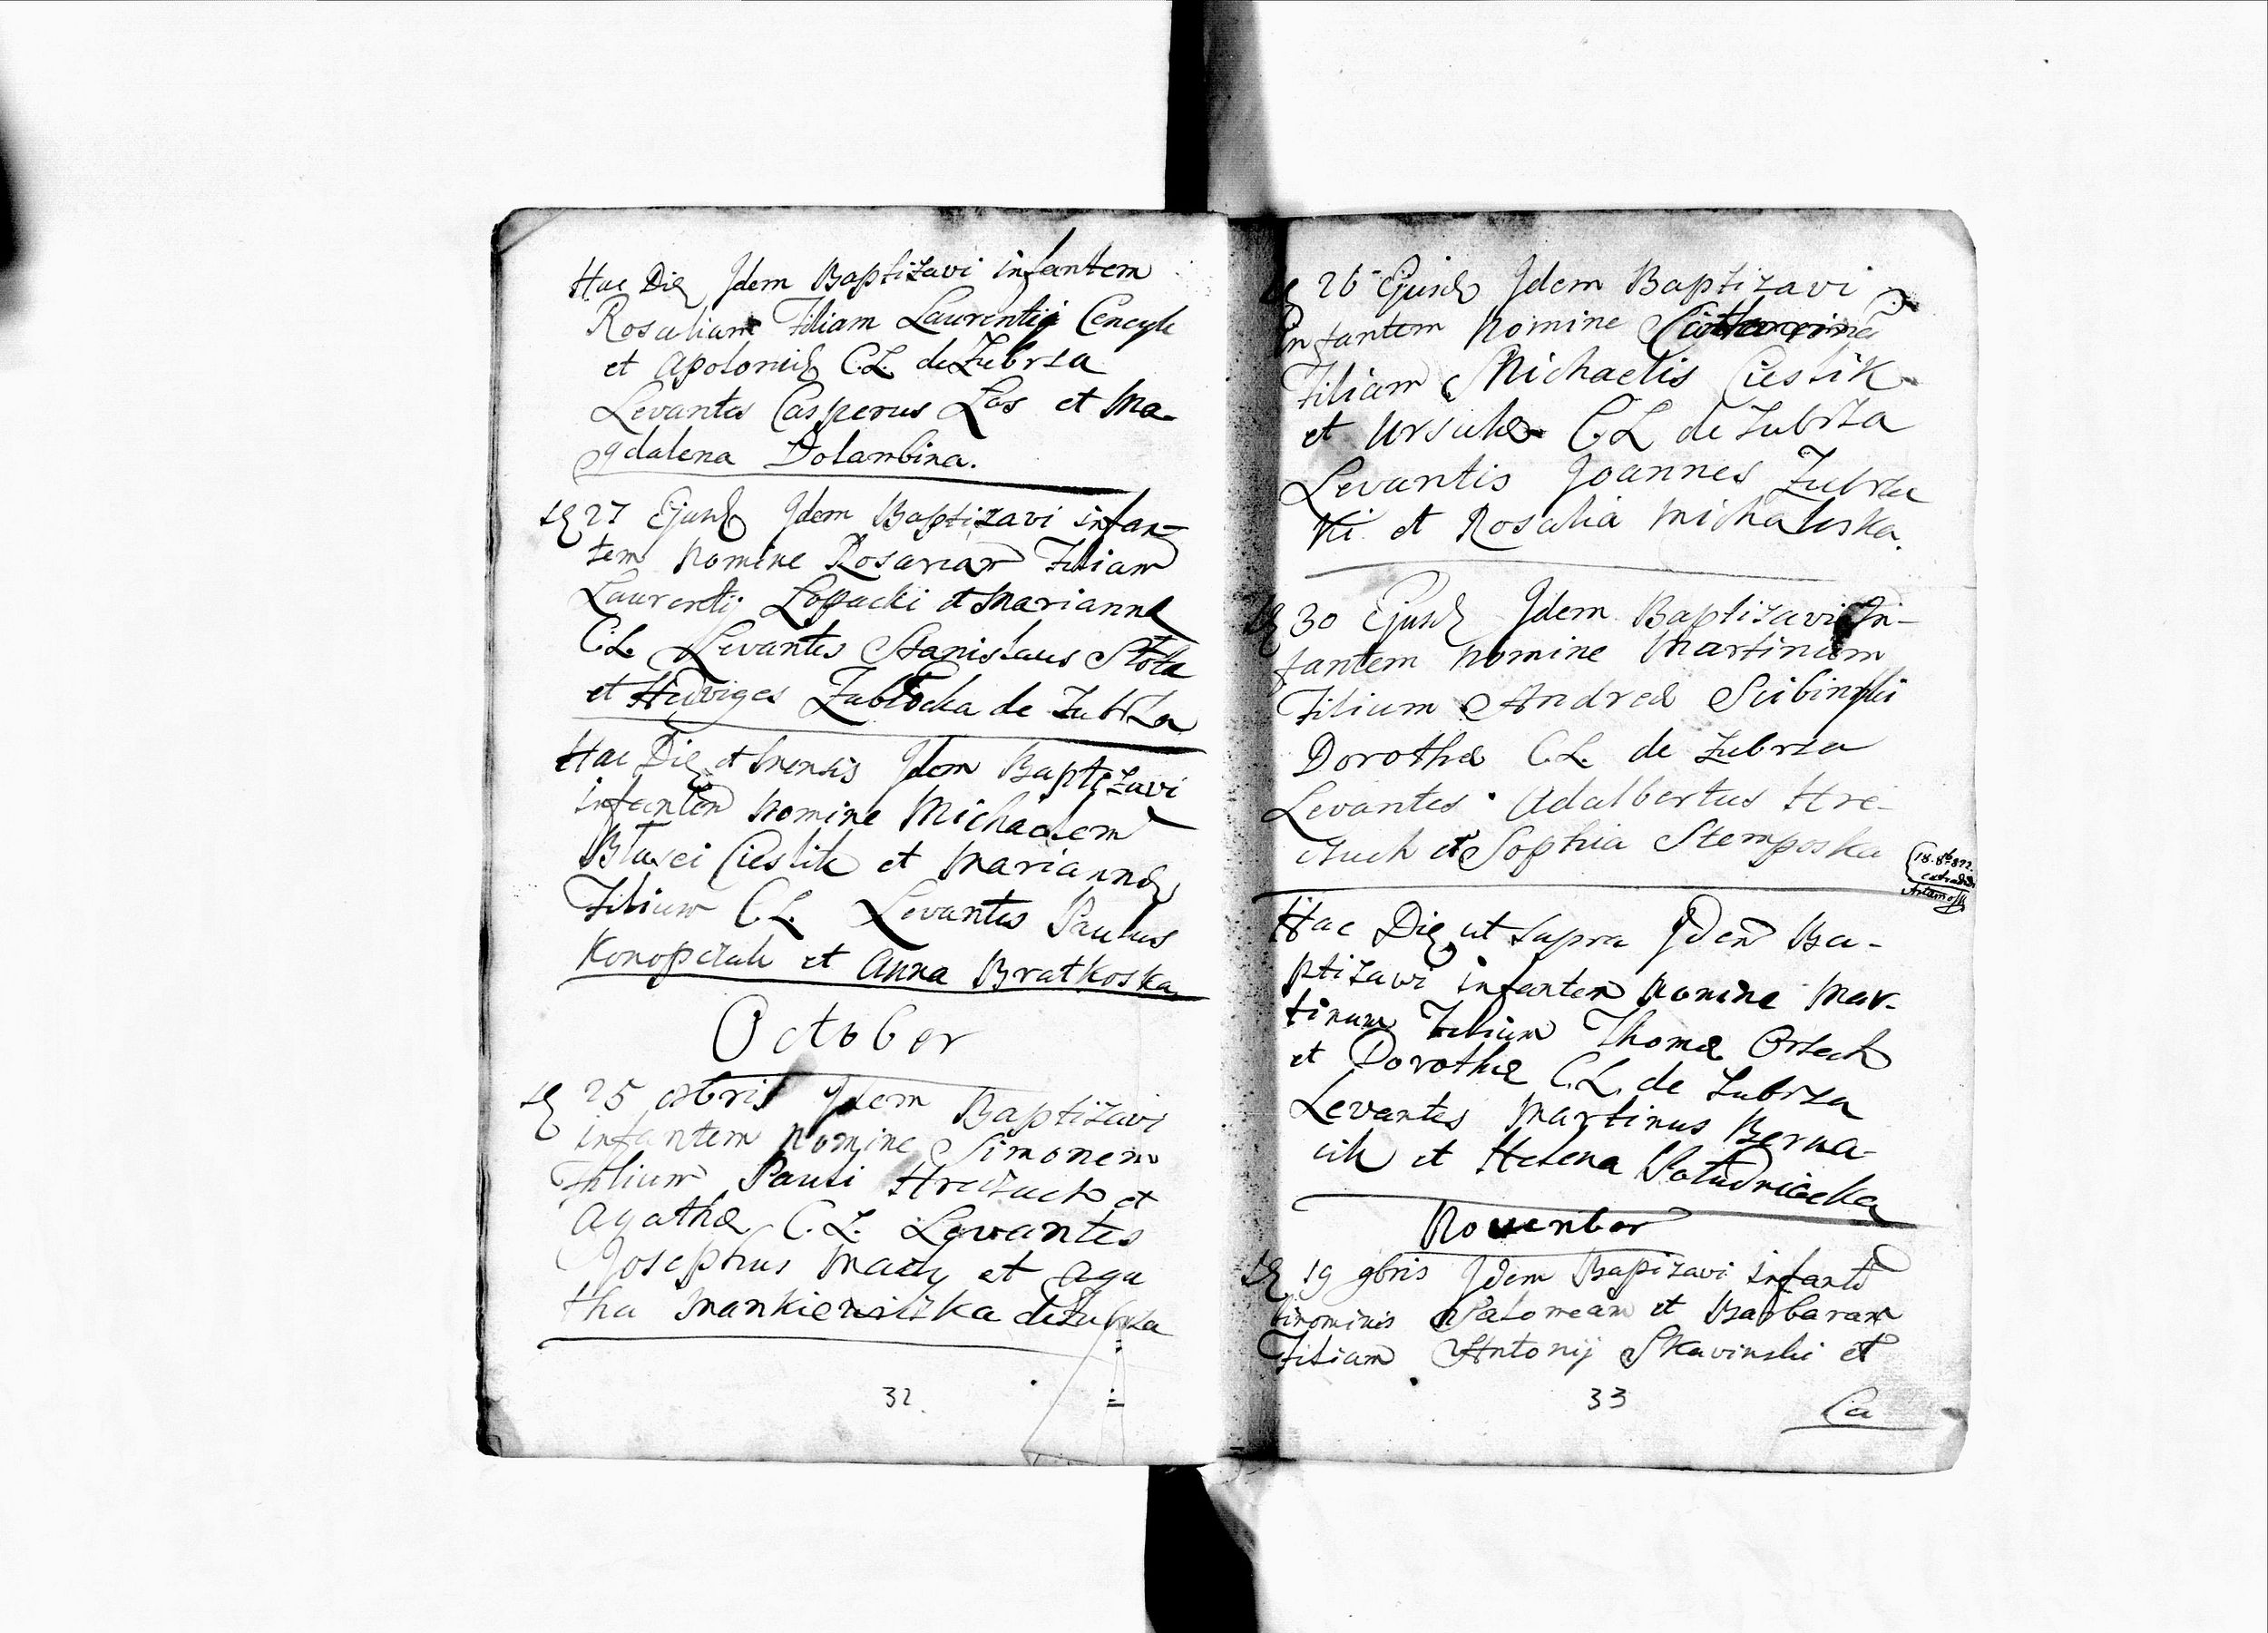 Hac Die Idem Baptizavi infantem
Rosaliam Filiam Laurentij Cencyk
et Apoloniæ C.L. de Zubrza
Levantes Casperus Los et Ma-
gdalena Dolambina.
27 Ejusd Idem Baptizavi infan-
tem Nomine Rosariam Filiam
Laurentij Lopacki et Mariannæ
C.L. Levantes Stanislaus Slota
et Hedviges Zablocka de Zubrza
Hac Die et Mensis Idem Baptizavi
infantem Nomine Michaelem
Blasei Cieslik et Mariannæ
Filium C.L. Levantes Paulus
Konopczak et Anna Bratkoska
October
25 octbris Idem Baptizavi
infantem Nomine Simonem
Filium Pauli Hreczuch et
Agathæ C.L. Levantes
Josephus et Aga
tha Mankieviczka de Zubrza
32
26 Ejusd Idem Baptizavi
infantem Nomine Catharina
Filiam Michaelis Cieslik
et Ursulæ C.L. de Zubrza
Levantis Joannes Zubrzu
ki et Rosalia Michaluska.
30 Ejusd Idem Baptizavi In-
fantem Nomine Martinum
Filium Andreæ Scibinski
Dorothæ C.L. de Zubrza
Levantes Adalbertus Hre-
czuch et Sophia Stemposka
Hac Die ut supra Idem Ba-
ptizavi infantem Nomine Mar-
tinum Filium Thomæ Orsech
et Dorothæ C.L. de Zubrza
Levantes Martinus Berna-
cik et Helena
November
19 9bris Idem Bapizavi infant
binominis Salomeam et Barbaram
Filiam Antonij Skavinski et
33
Ca